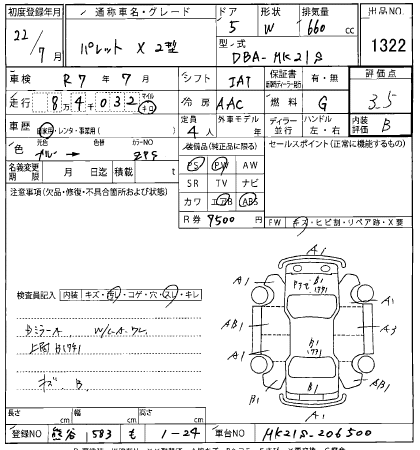 初度登録年月 通称車名・グレード ドア 形状 排気量 出品NO
22/7月 パレット X 2型 5 W 660 cc 1322
型式 DBA-MK21S
車検 R7年7月 シフト IAT 保証書 有・無 評価点
走行 8万4千032 マイル キロ 冷房 AAC 燃料 G 3.5
車歴 自家用・レンタ・事業用( ) 定員 4人 外車モデル 年 ディーラー 並行 ハンドル 左・右 内装評価 B
色 元色 ブルー 色替 カラーNO ZPS 装備品(純正品に限る) セールスポイント(正常に機能するもの)
名義変更期限 月 日迄 積載 t PS PW AW
注意事項(欠品・修復・不具合箇所および状態) SR TV ナビ
カワ エアB ABS
R券 9500 円 FW キズ・ヒビ割・リペア跡・X要
A1
A1 B1 A1
検査員記入 内装 キズ・汚レ・コゲ・穴・スレ・キレ
AB1 B1 A3
A1 A1
B1 B1 AB1
A1
キズ、B
長さ cm 幅 cm 高さ cm
登録NO 熊谷 583 も 1-24 車台NO MK21S-206500